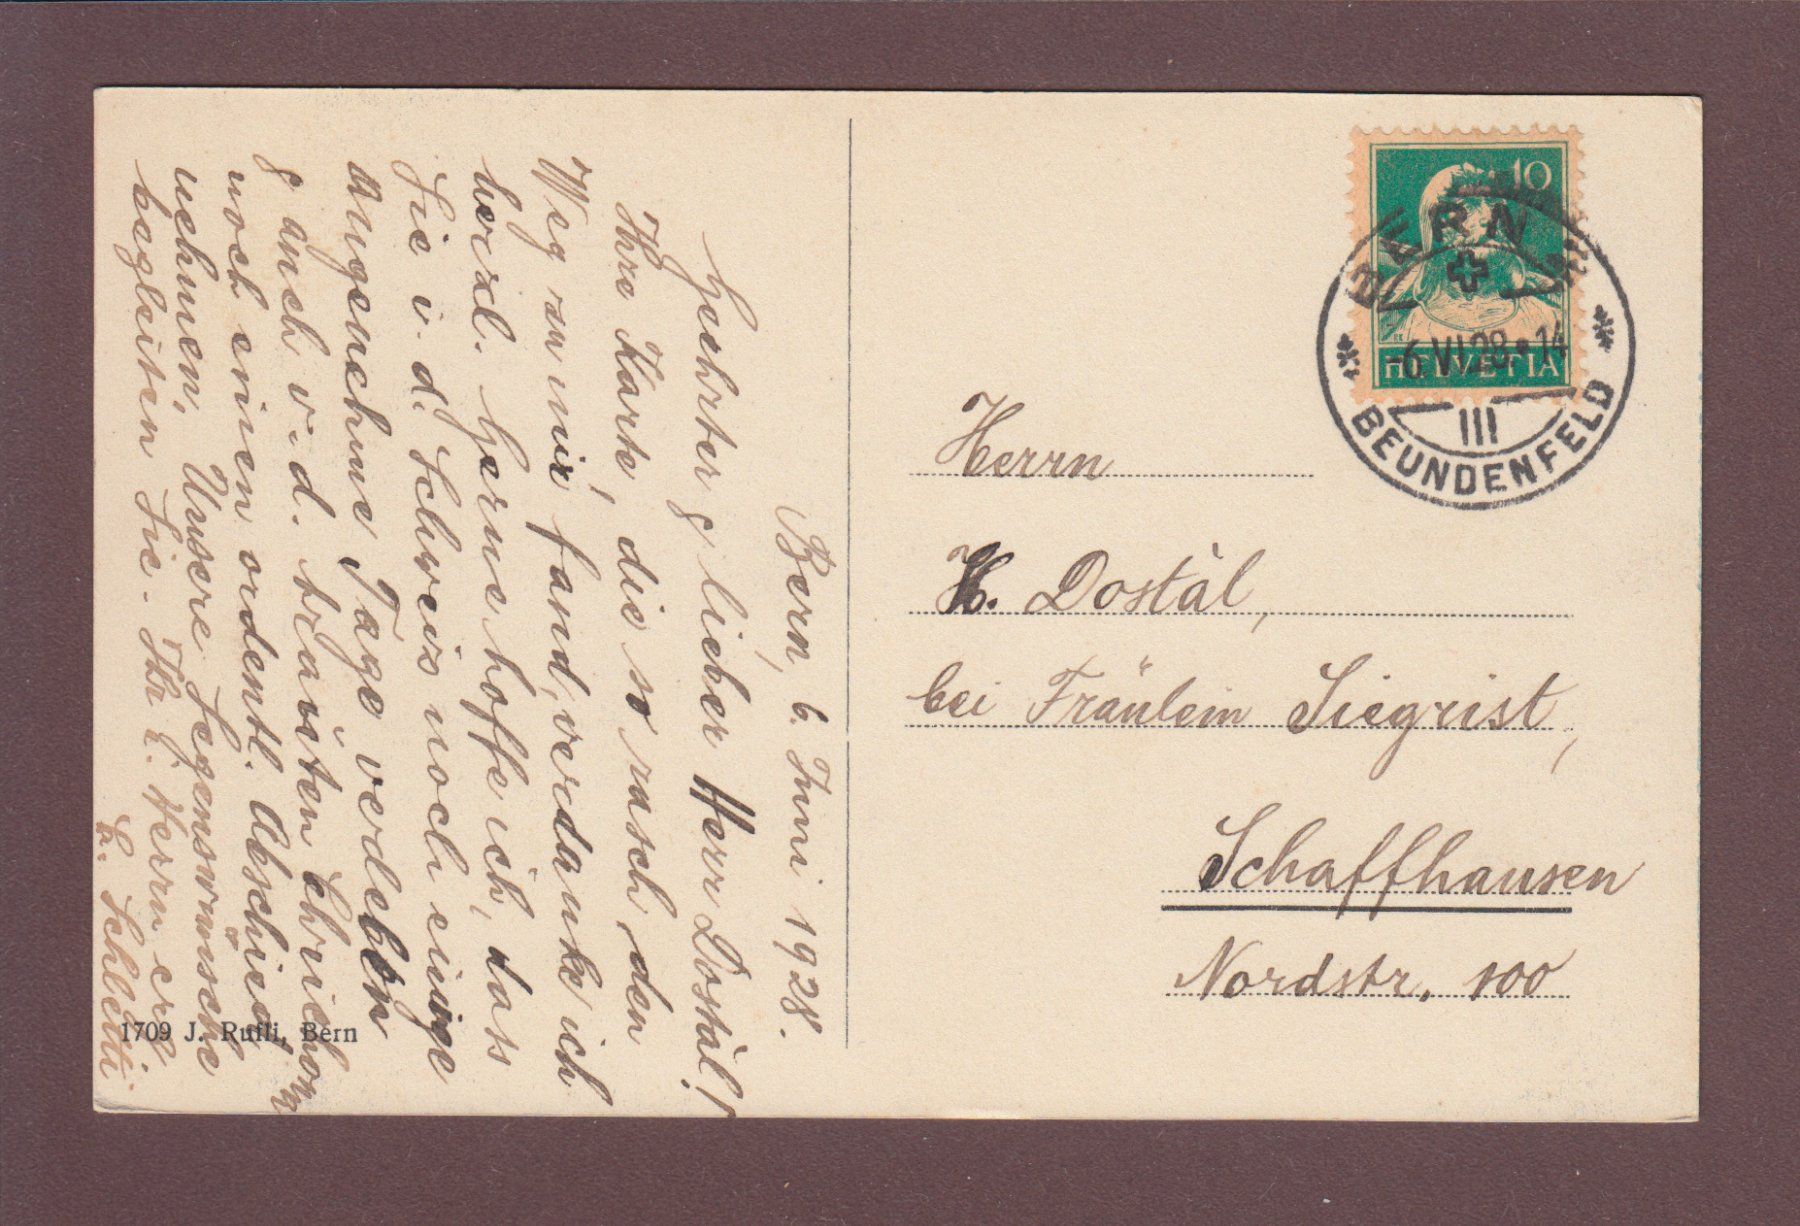 Bern, 6. Juni 1928.
Geehrter & lieber Herr Dostàl!
Ihre Karte, die so rasch den
Weg zu mir fand, verdanke ich
herzl. Gerne hoffe ich, dass
Sie i. d. Schweiz noch einige
angenehme Tage verleben
& auch v. d. trauten
noch einen ordentl. Abschied
nehmen. Unsere Segenswünsche
begleiten Sie. Ihr l. Herrn
L. Schletti
1709 J. Rufli, Bern
10
HELVETIA
BERN
-6.VI.28•14
III
BEUNDENFELD
Herrn
H. Dostàl,
bei Fräulein Siegrist,
Schaffhausen
Nordstr. 100